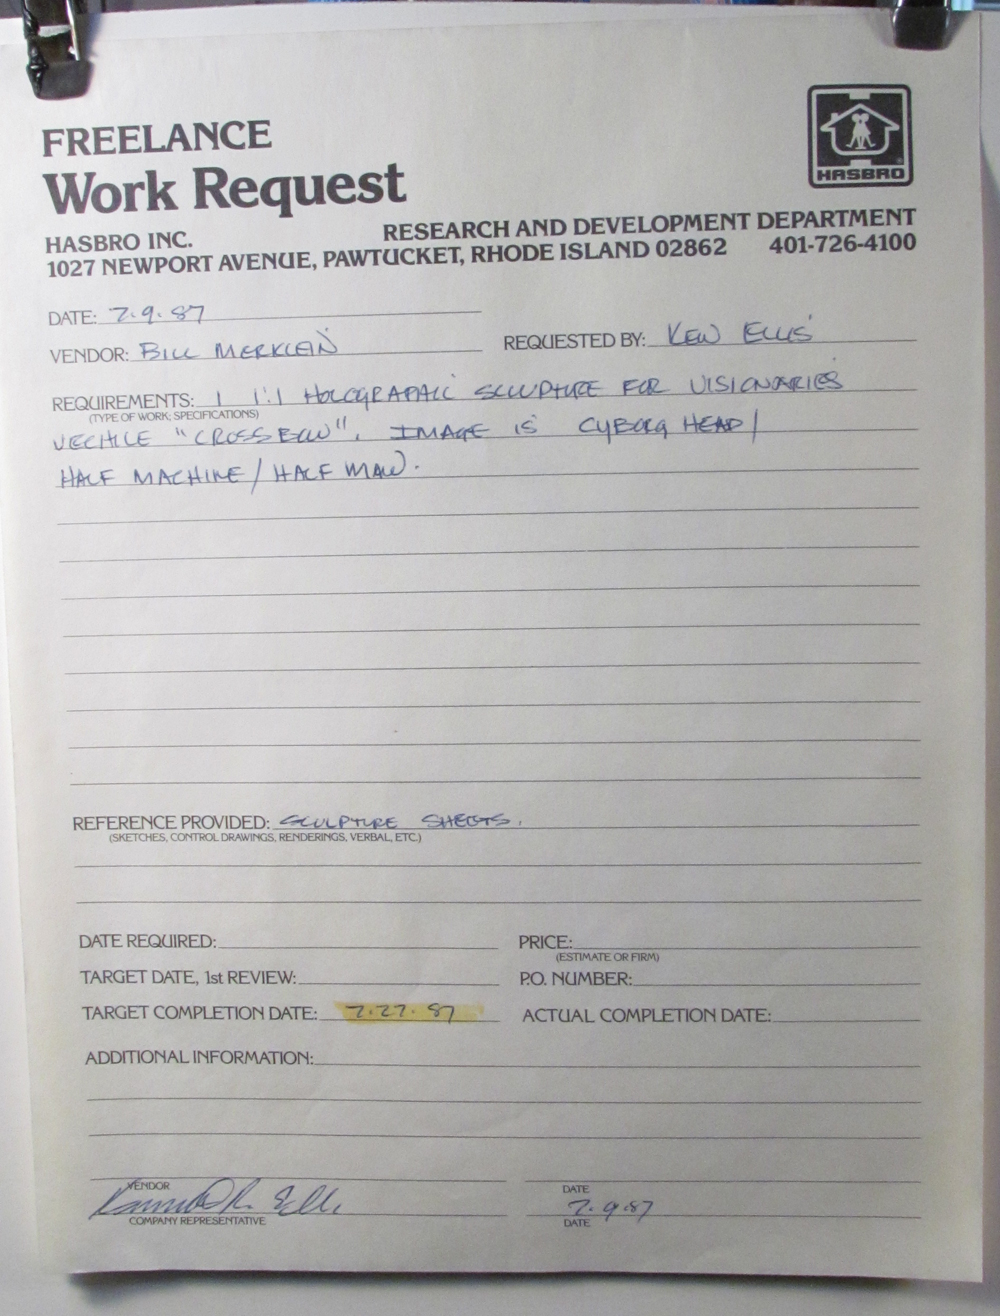 FREELANCE
Work Request
HASBRO
HASBRO INC. RESEARCH AND DEVELOPMENT DEPARTMENT
1027 NEWPORT AVENUE, PAWTUCKET, RHODE ISLAND 02862 401-726-4100
DATE: 7.9.87
VENDOR: BILL MERKLEIN REQUESTED BY: KEN ELLIS
REQUIREMENTS: 1 1:1 HOLOGRAPHIC SCULPTURE FOR VISIONARIES
(TYPE OF WORK; SPECIFICATIONS)
VECHILE "CROSSBOW". IMAGE IS CYBORG HEAD/
HALF MACHINE/HALF MAN.
REFERENCE PROVIDED: SCULPTURE SHEETS.
(SKETCHES, CONTROL DRAWINGS, RENDERINGS, VERBAL, ETC.)
DATE REQUIRED: PRICE:
(ESTIMATE OR FIRM)
TARGET DATE, 1st REVIEW: P.O. NUMBER:
TARGET COMPLETION DATE: 7.27.87 ACTUAL COMPLETION DATE:
ADDITIONAL INFORMATION:
VENDOR DATE
Kenneth R. Ellis 7.9.87
COMPANY REPRESENTATIVE DATE